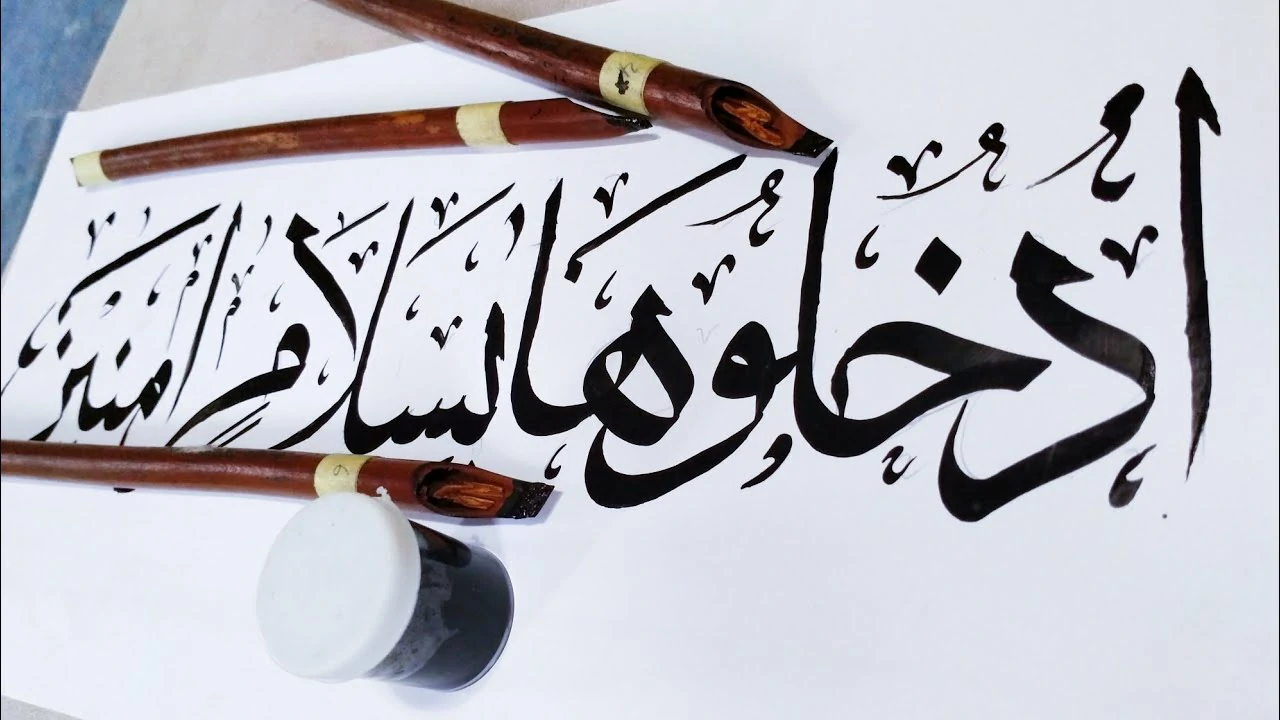 أُدْخُلُوهَا بِسَلَامٍ اٰمِنِينَ